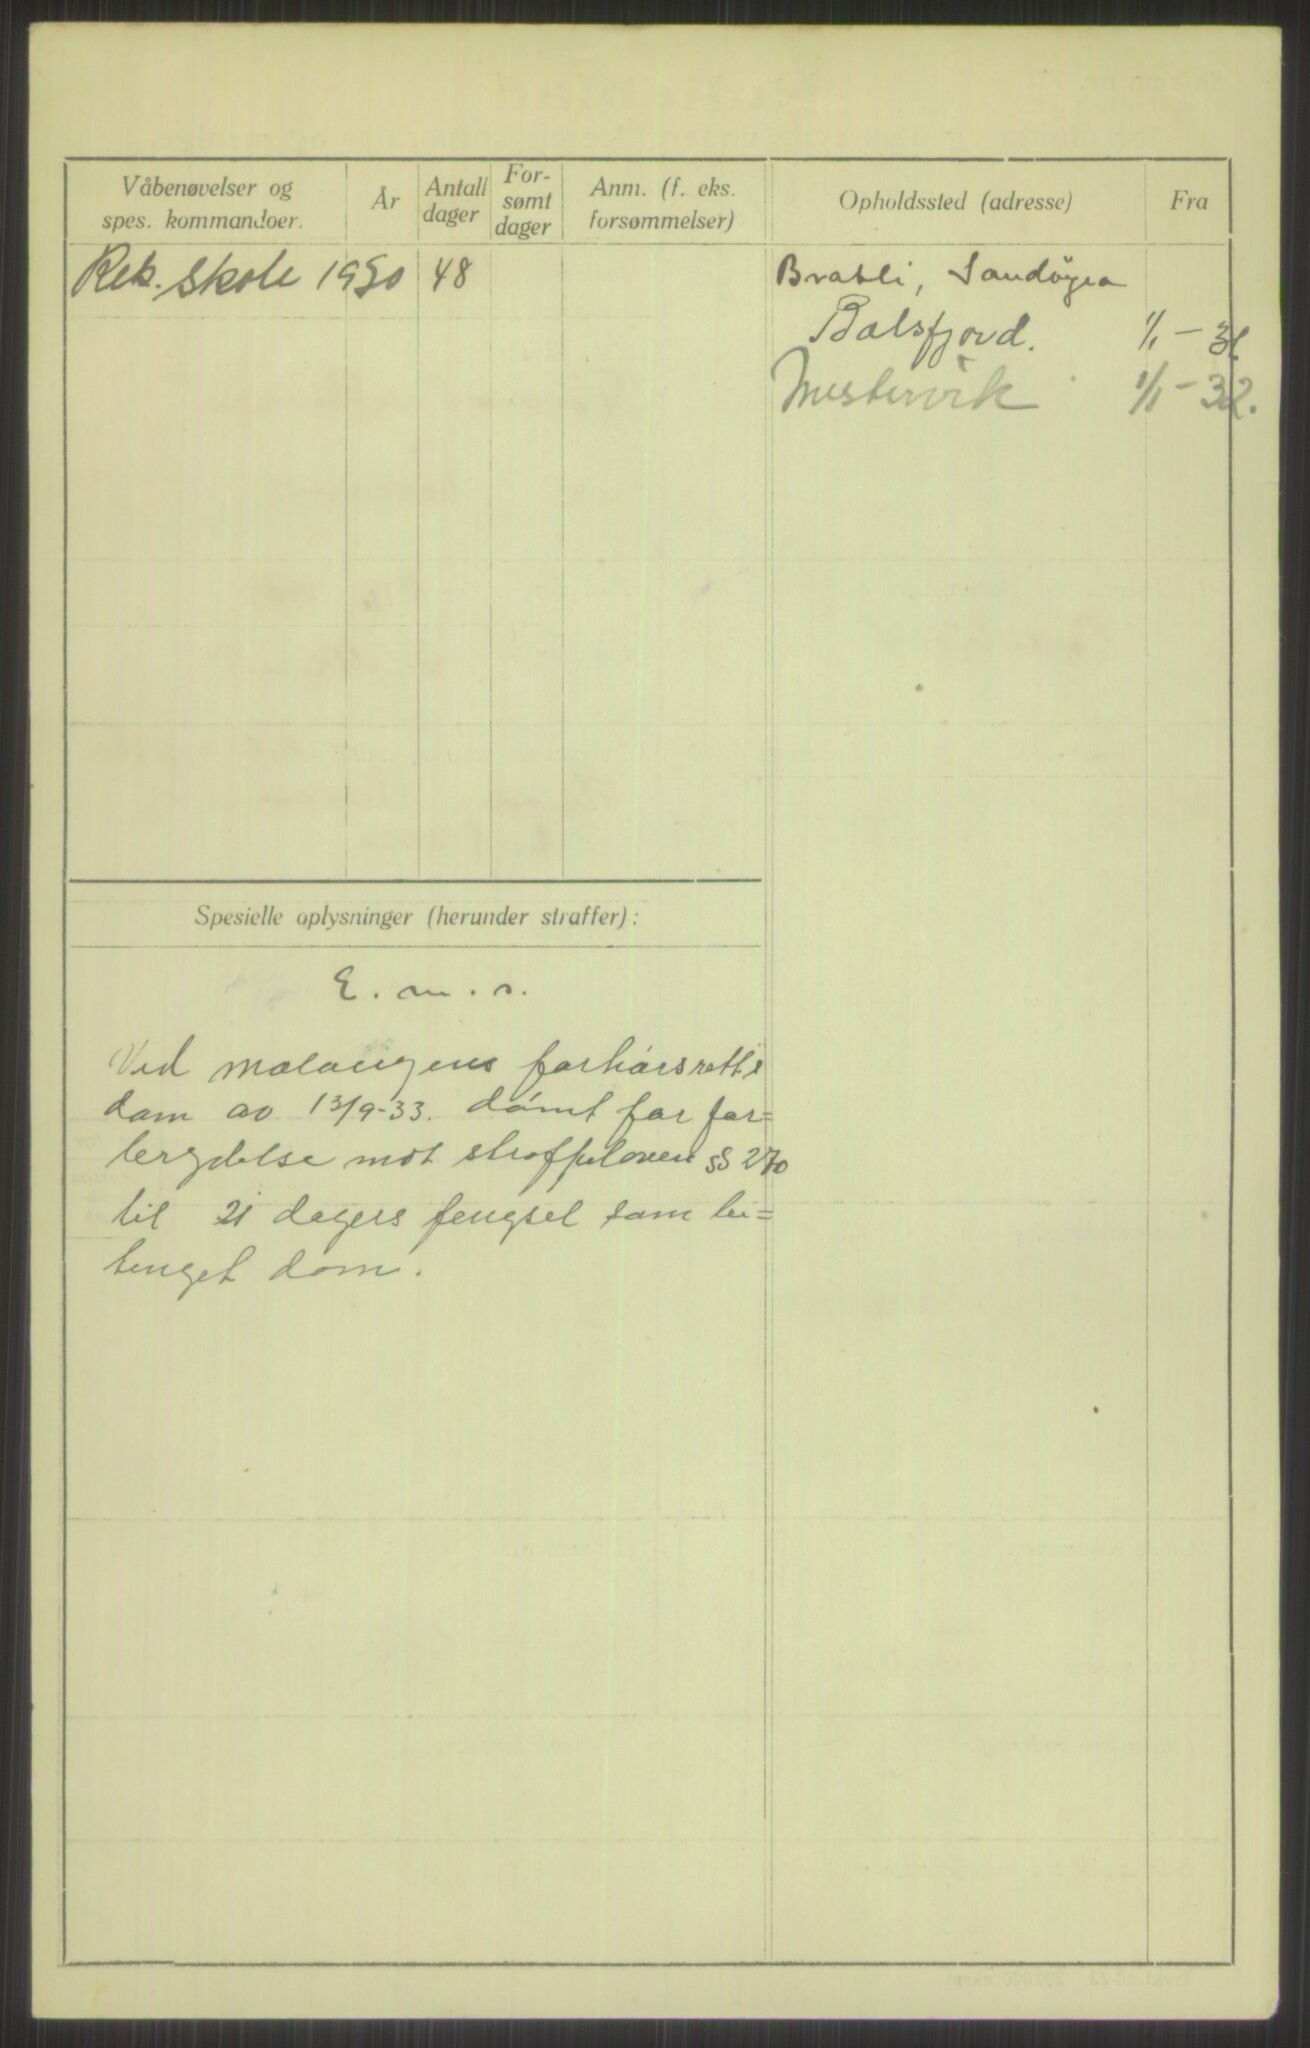 Våbenøvelser og
spes. kommandoer.
År
Antall
dager
For-
sømt
dager
Anm. (f. eks.
forsømmelser)
Opholdssted (adresse)
Fra
Rek. skole 1930 48
Bratli, Sandøyra
Balsfjord. 1/1 - 31.
Mestervik 1/1 - 32.
Spesielle oplysninger (herunder straffer):
E. m. s.
Ved Malangens forhørsretts
dom av 13/9-33. dømt for for=
brydelse mot straffeloven §§ 270
til 21 dagers fengsel som be=
tinget dom.